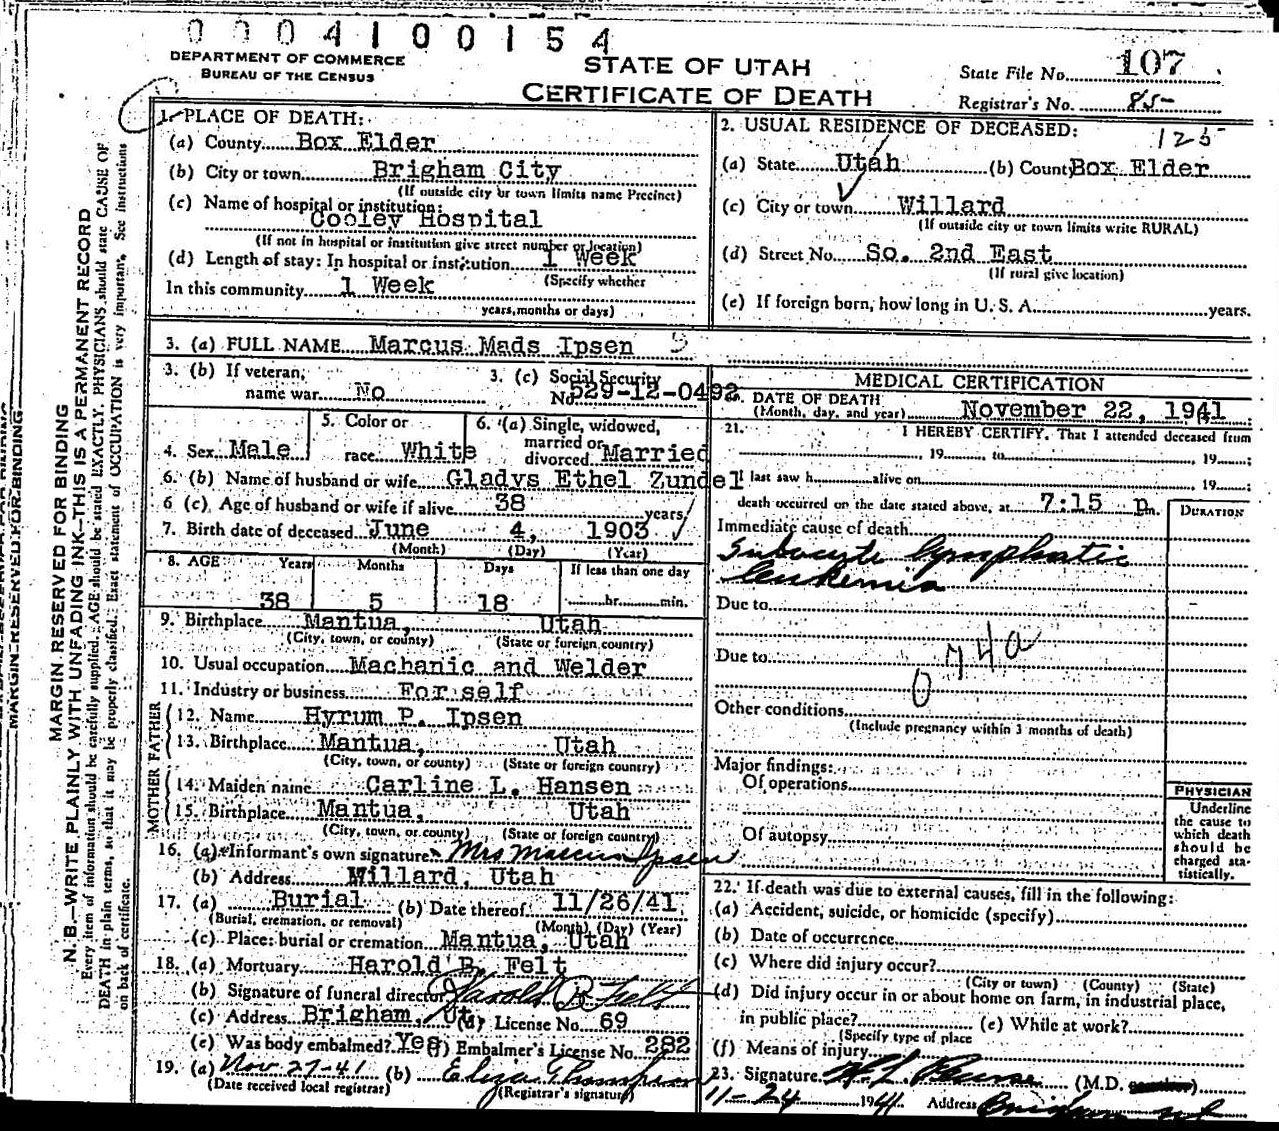 0 0 0 4 1 0 0 1 5 4
DEPARTMENT OF COMMERCE
BUREAU OF THE CENSUS
STATE OF UTAH
CERTIFICATE OF DEATH
State File No. 107
Registrar's No. 85-
MARGIN RESERVED FOR BINDING
N. B.—WRITE PLAINLY WITH UNFADING INK—THIS IS A PERMANENT RECORD
Every item of information should be carefully supplied. AGE should be stated EXACTLY. PHYSICIANS should state CAUSE OF
DEATH in plain terms, so that it may be properly classified. Exact statement of OCCUPATION is very important. See instructions
on back of certificate.
1. PLACE OF DEATH:
(a) County Box Elder
(b) City or town Brigham City
(If outside city or town limits name Precinct)
(c) Name of hospital or institution:
Cooley Hospital
(If not in hospital or institution give street number or location)
(d) Length of stay: In hospital or institution 1 Week
(Specify whether
In this community 1 Week
years, months or days)
2. USUAL RESIDENCE OF DECEASED: 125
(a) State Utah (b) County Box Elder
(c) City or town Willard
(If outside city or town limits write RURAL)
(d) Street No. So. 2nd East
(If rural give location)
(e) If foreign born, how long in U. S. A. years.
3. (a) FULL NAME Marcus Mads Ipsen
3. (b) If veteran,
name war No
3. (c) Social Security
No. 529-12-0492
4. Sex Male
5. Color or
race White
6. (a) Single, widowed,
married or
divorced Married
6. (b) Name of husband or wife Gladys Ethel Zundel
6 (c). Age of husband or wife if alive 38 years
7. Birth date of deceased June 4, 1903
(Month) (Day) (Year)
8. AGE Years Months Days If less than one day
38 5 18 hr. min.
9. Birthplace Mantua, Utah
(City, town, or county) (State or foreign country)
10. Usual occupation Machanic and Welder
11. Industry or business For self
FATHER
12. Name Hyrum P. Ipsen
13. Birthplace Mantua, Utah
(City, town, or county) (State or foreign country)
MOTHER
14. Maiden name Carline L. Hansen
15. Birthplace Mantua, Utah
(City, town, or county) (State or foreign country)
16. (a) Informant's own signature Mrs Marcus Ipsen
(b) Address Willard, Utah
17. (a) Burial (b) Date thereof 11/26/41
(Burial, cremation, or removal) (Month) (Day) (Year)
(c) Place: burial or cremation Mantua, Utah
18. (a) Mortuary Harold B. Felt
(b) Signature of funeral director Harold B Felt
(c) Address Brigham, Ut. (d) License No. 69
(e) Was body embalmed? Yes (f) Embalmer's License No. 282
19. (a) Nov 27-41 (b) Eliza Thompson
(Date received local registrar) (Registrar's signature)
MEDICAL CERTIFICATION
20. DATE OF DEATH
(Month, day, and year) November 22, 1941
21. I HEREBY CERTIFY, That I attended deceased from
19 , to 19 ;
I last saw h alive on 19 ;
death occurred on the date stated above, at 7:15 p m.
DURATION
Immediate cause of death
Subacute lymphatic
leukemia
Due to
Due to
074a
Other conditions
(Include pregnancy within 3 months of death)
Major findings:
Of operations
Of autopsy
PHYSICIAN
Underline
the cause to
which death
should be
charged sta-
tistically.
22. If death was due to external causes, fill in the following:
(a) Accident, suicide, or homicide (specify)
(b) Date of occurrence
(c) Where did injury occur?
(City or town) (County) (State)
(d) Did injury occur in or about home on farm, in industrial place,
in public place? (e) While at work?
(Specify type of place
(f) Means of injury
23. Signature (M.D.
11-24 1941 Address Brigham, Ut